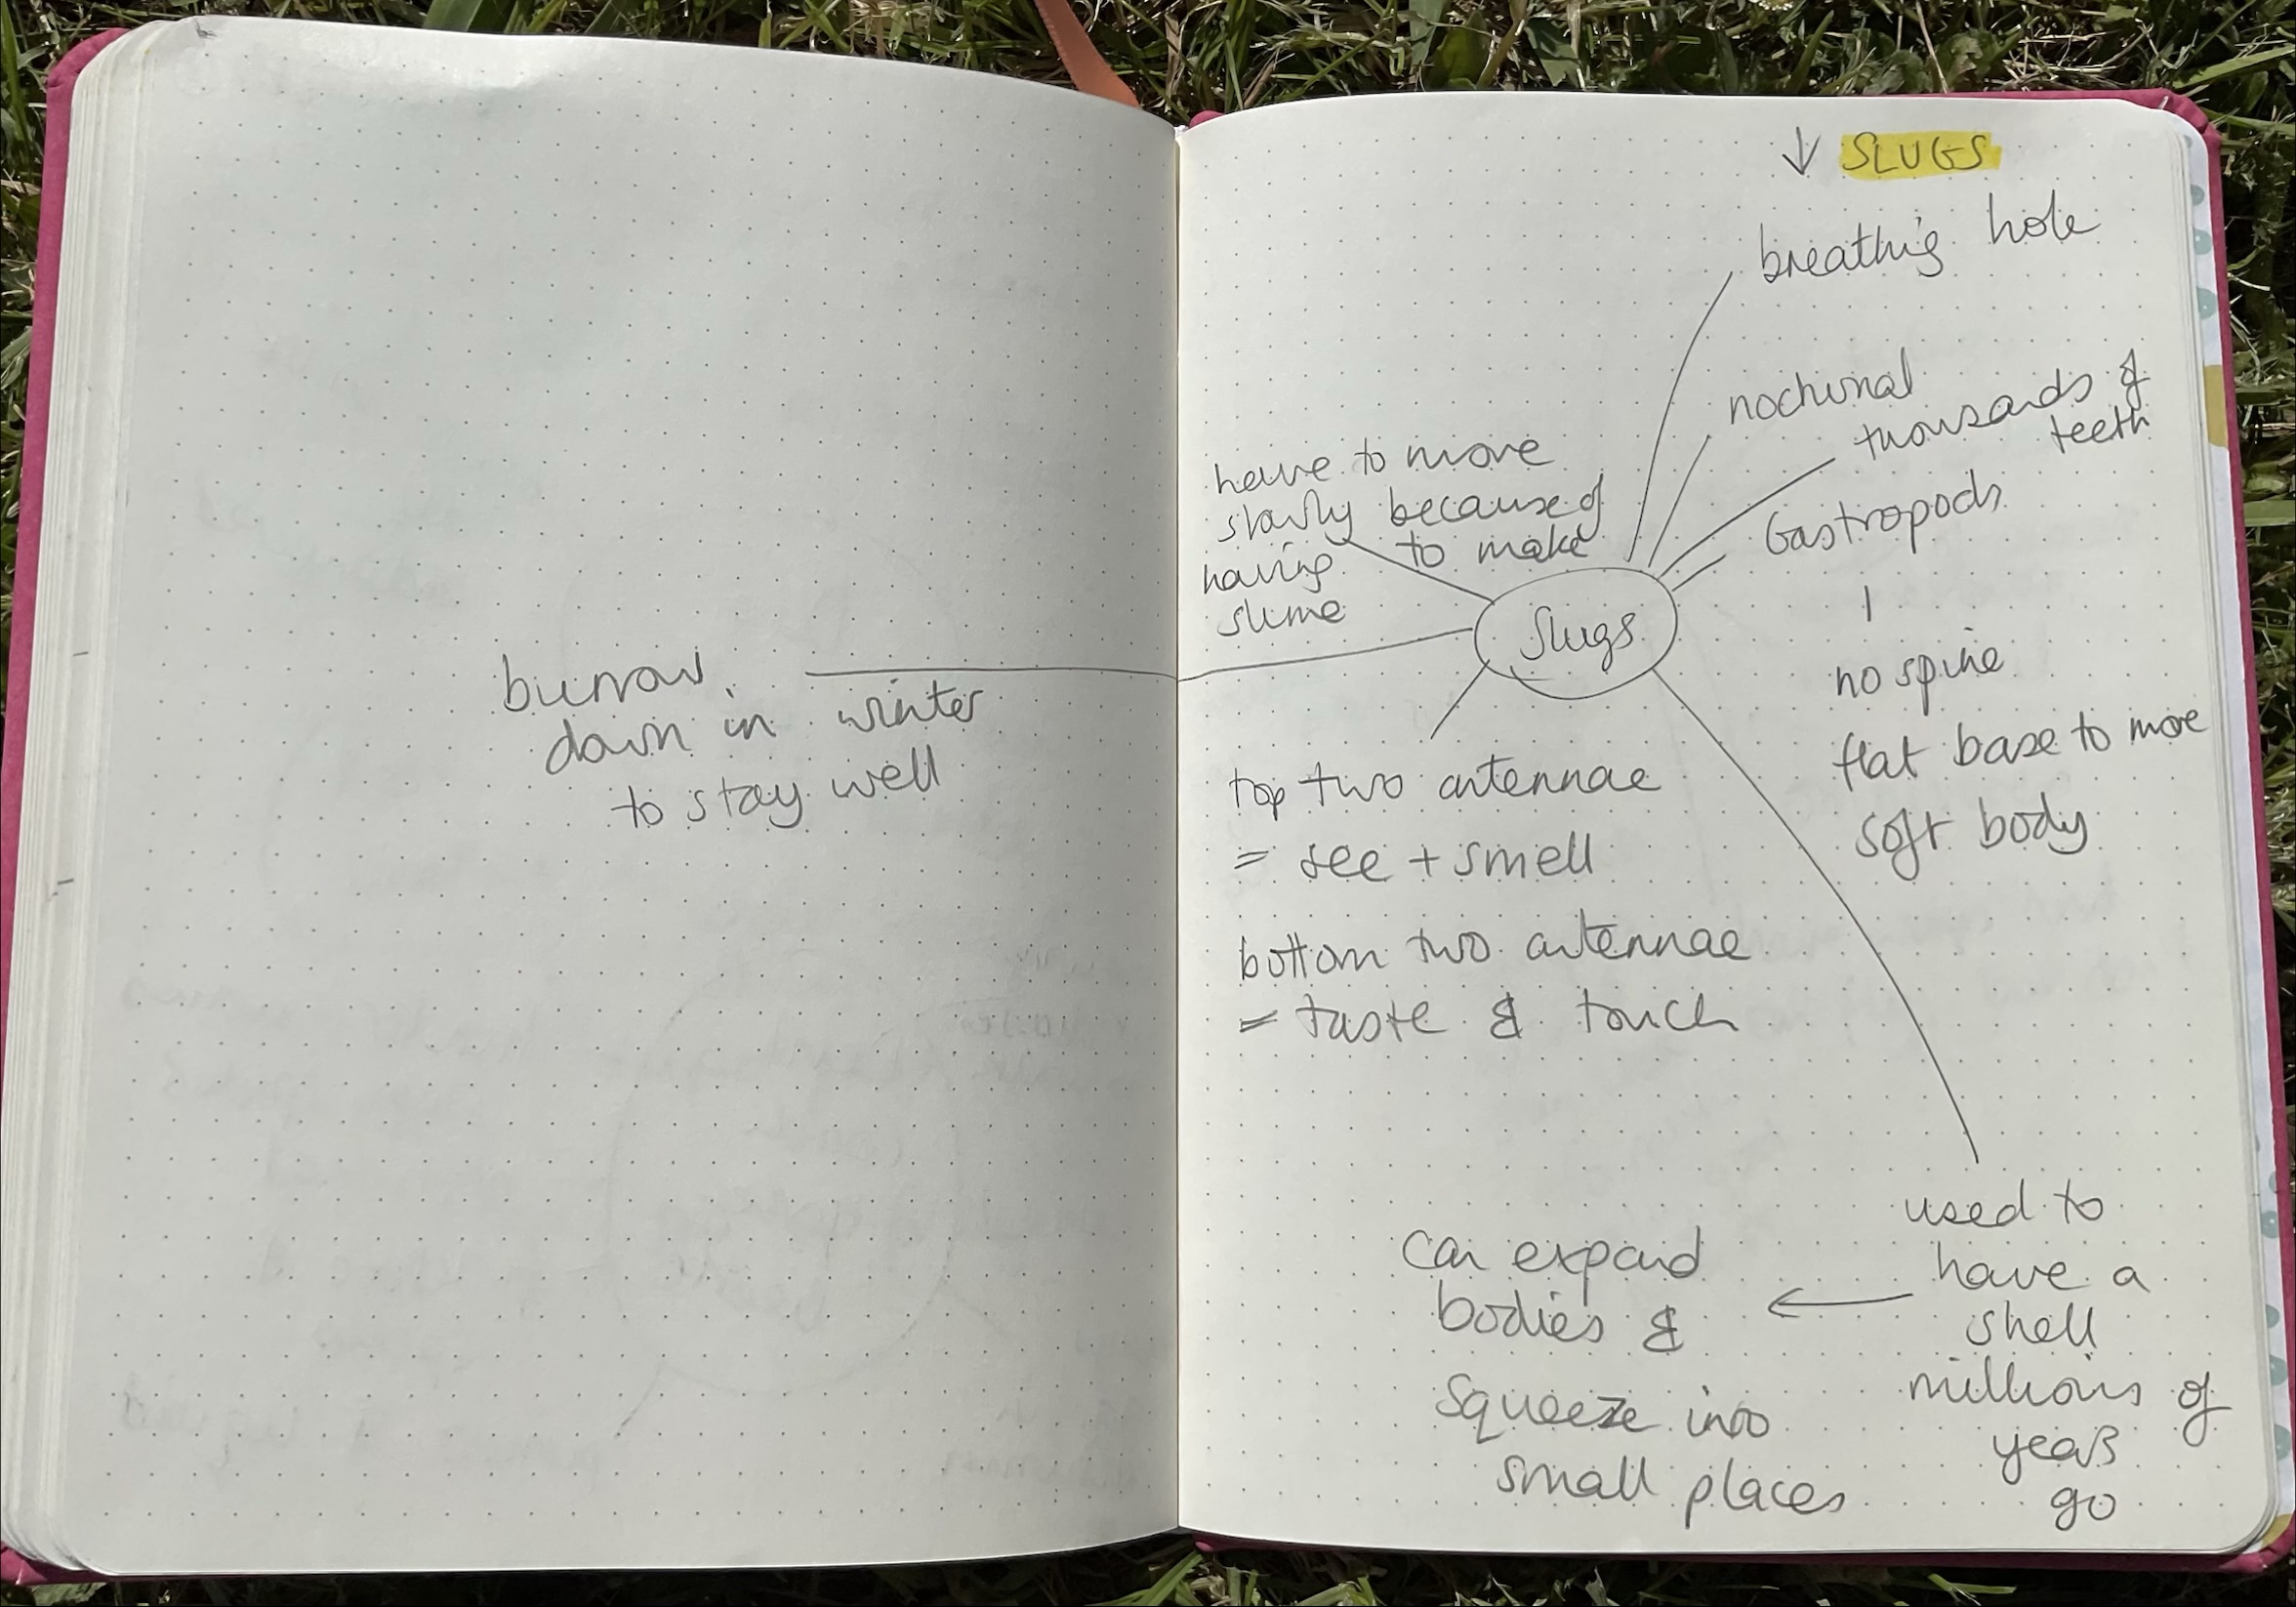 burrow
down in winter
to stay well
↓ SLUGS
breathing hole
nocturnal
thousands of
teeth
Gastropods
no spine
flat base to move
soft body
have to move
slowly because of
having to make
slime
Slugs
top two antennae
= see + smell
bottom two antennae
= taste & touch
used to
have a
shell
millions of
years
go
can expand
bodies &
squeeze into
small places